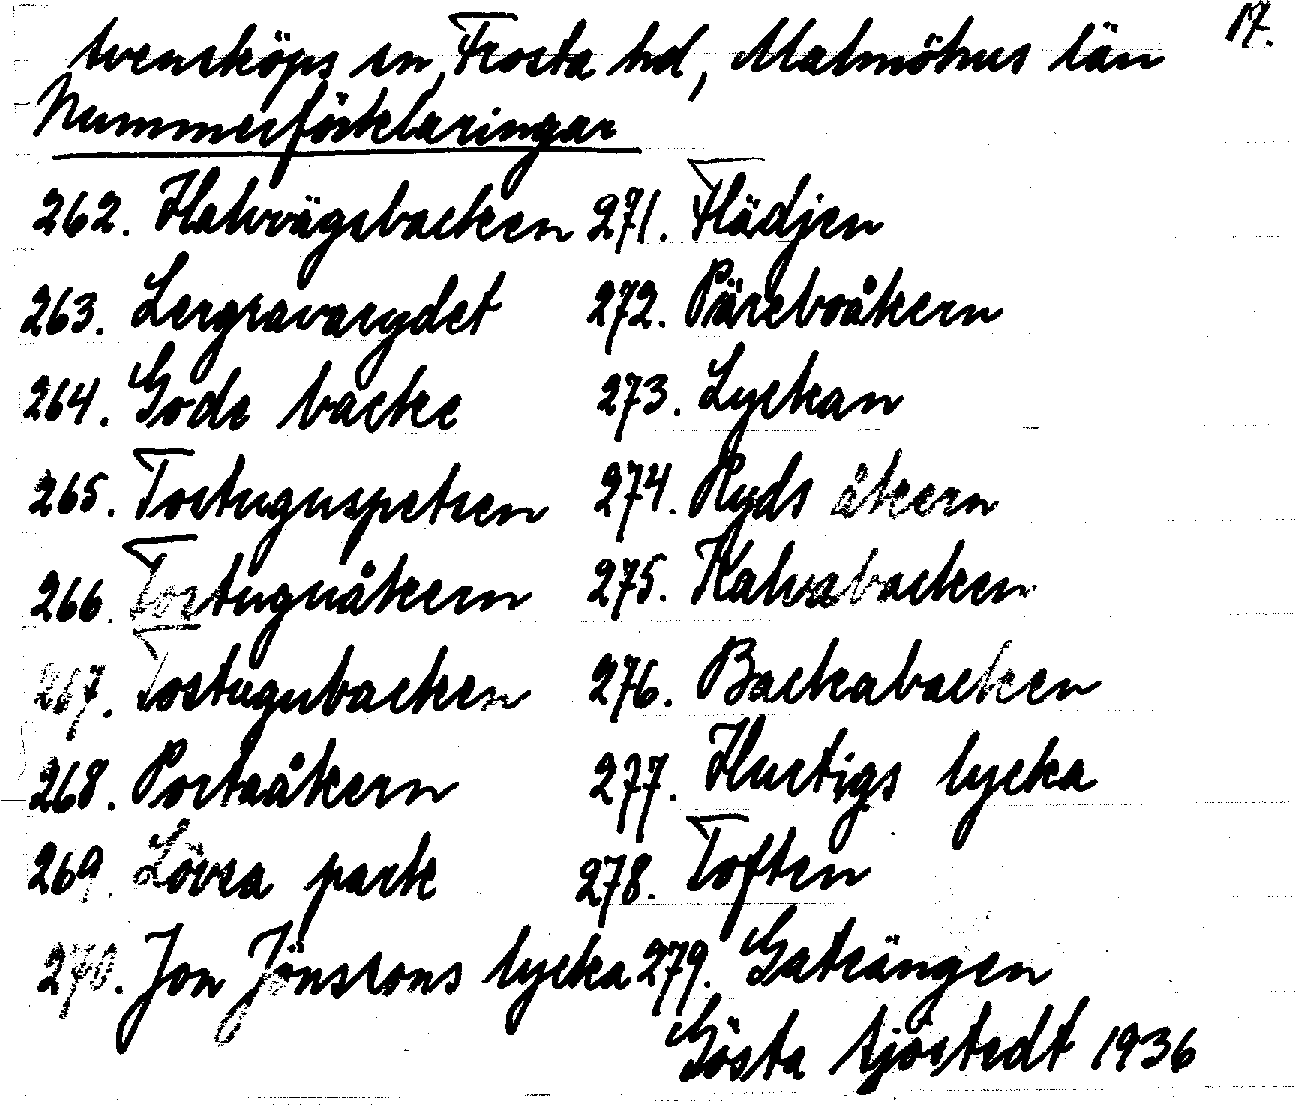 17.
Svensköps sn, Frosta hd, Malmöhus län
Nummerförklaringar
262. Halvvägsbacken
263. Lergravarydet
264. Gode backe
265. Tostuguspetsen
266. Tostuguåkern
267. Tostugubacken
268. Portaåkern
269. Lövsa park
270. Jon Jönssons lycka
271. Flädjen
272. Päreboåkern
273. Lyckan
274. Ryds åkern
275. Kalvabacken
276. Backabacken
277. Hurtigs lycka
278. Toften
279. Gateängen
Gösta Sjöstedt 1936